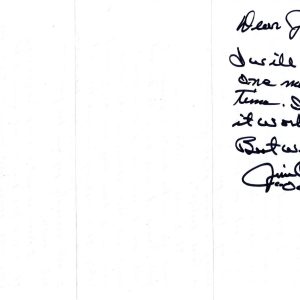 Dear J
I will
one m
Time.
it wor
Best w
Jim